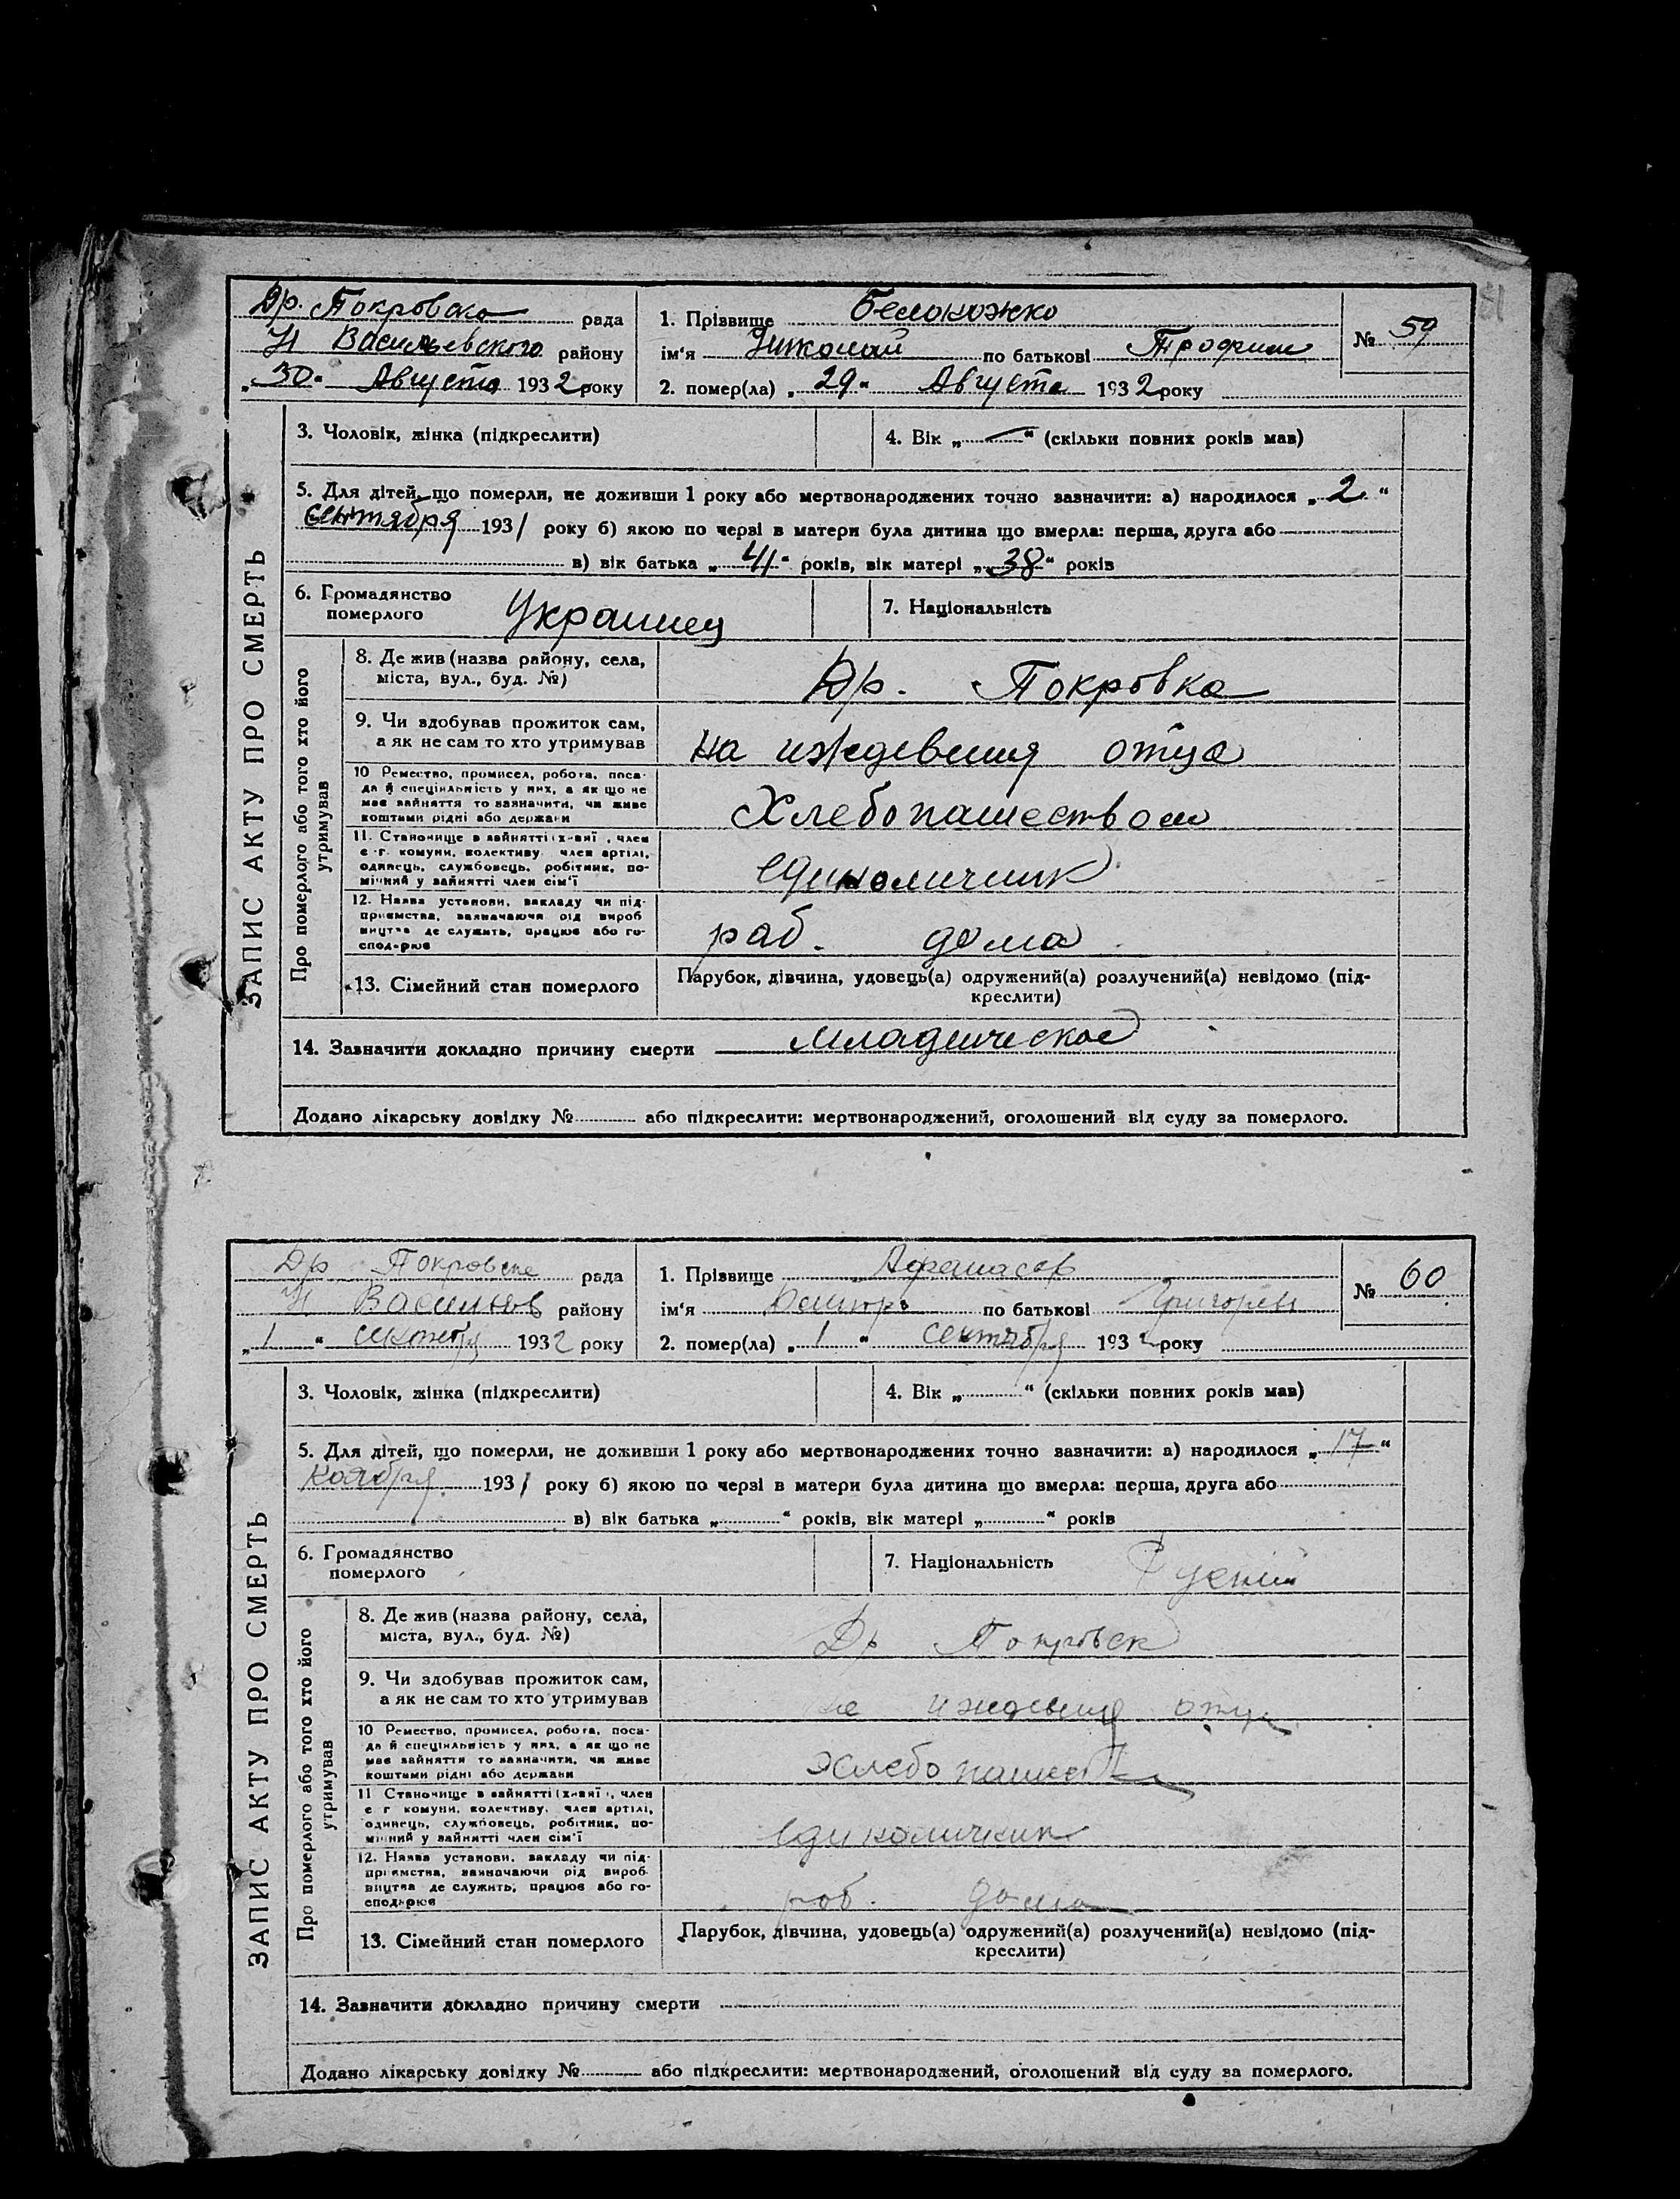 Др. Покровско рада
Н Васильевского району
„30“ Августа 1932 року
1. Прізвище Белоножко
ім'я Николай по батькові Трофим
2. помер(ла) „29“ Августа 1932 року
№ 59
ЗАПИС АКТУ ПРО СМЕРТЬ
3. Чоловік, жінка (підкреслити)
4. Вік „—“ (скільки повних років мав)
5. Для дітей, що померли, не доживши 1 року або мертвонароджених точно зазначити: а) народилося „2“
сентября 1931 року б) якою по черзі в матери була дитина що вмерла: перша, друга або
в) вік батька „41“ років, вік матері „38“ років
6. Громадянство
померлого
Украинец
7. Національність
Про померлого або того хто його
утримував
8. Де жив (назва району, села,
міста, вул., буд. №)
Др. Покровка
9. Чи здобував прожиток сам,
а як не сам то хто утримував
на иждевения отца
10 Ремество, промисел, робота, поса-
да й спеціяльність у них, а як що не
має зайняття то зазначити, чи живе
коштами рідні або держави
Хлебопашеством
11. Становище в зайнятті (хазяї, член
с.-г. комуни, колективу, член артілі,
одинець, службовець, робітник, по-
мічний у зайнятті член сім'ї
единоличник
12. Назва установи, закладу чи під-
приємства, зазначаючи рід вироб
ництва де служить, працює або го-
сподарює
раб. дома
13. Сімейний стан померлого
Парубок, дівчина, удовець(а) одружений(а) розлучений(а) невідомо (під-
креслити)
14. Зазначити докладно причину смерти младенческое
Додано лікарську довідку № або підкреслити: мертвонароджений, оголошений від суду за померлого.
Др Покровске рада
Н Васильев району
„1“ сентября 1932 року
1. Прізвище Афанасов
ім'я по батькові Григорев
2. помер(ла) „1“ сентября 1932 року
№ 60
ЗАПИС АКТУ ПРО СМЕРТЬ
3. Чоловік, жінка (підкреслити)
4. Вік „ “ (скільки повних років мав)
5. Для дітей, що померли, не доживши 1 року або мертвонароджених точно зазначити: а) народилося „17“
ноября 1931 року б) якою по черзі в матери була дитина що вмерла: перша, друга або
в) вік батька „ “ років, вік матері „ “ років
6. Громадянство
померлого
7. Національність Руский
Про померлого або того хто його
утримував
8. Де жив (назва району, села,
міста, вул., буд. №)
Др Покровск
9. Чи здобував прожиток сам,
а як не сам то хто утримував
на иждевения отца
10 Ремество, промисел, робота, поса-
да й спеціяльність у них, а як що не
має зайняття то зазначити, чи живе
коштами рідні або держави
хлебопашест
11 Становище в зайнятті (хазяї, член
с г комуни, колективу, член артілі,
одинець, службовець, робітник, по-
мічний у зайнятті член сім'ї
единоличник
12. Назва установи, закладу чи під-
приємства, зазначаючи рід вироб-
ництва де служить, працює або го-
сподарює
роб. дома
13. Сімейний стан померлого
Парубок, дівчина, удовець(а) одружений(а) розлучений(а) невідомо (під-
креслити)
14. Зазначити докладно причину смерти
Додано лікарську довідку № або підкреслити: мертвонароджений, оголошений від суду за померлого.